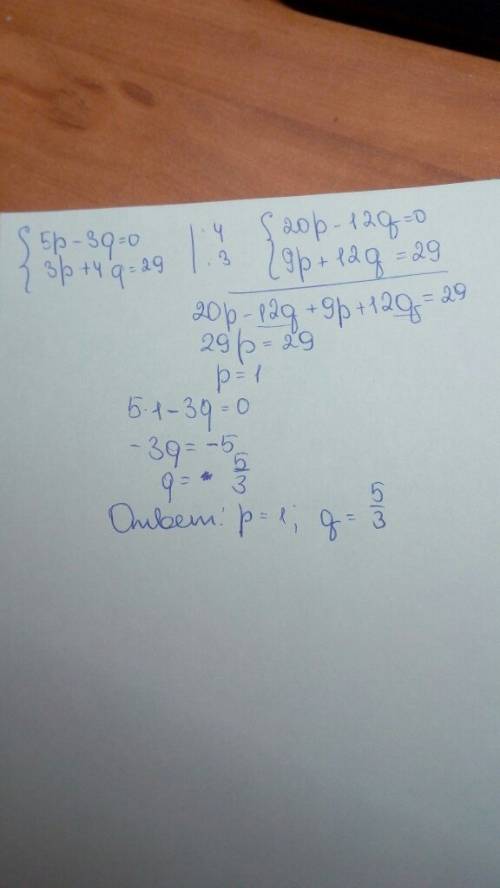 { 5p - 3q = 0 | · 4 { 20p - 12q = 0
3p + 4q = 29 | · 3 9p + 12q = 29
20p - 12q + 9p + 12q = 29
29p = 29
p = 1
5 · 1 - 3q = 0
- 3q = - 5
q = 5/3
Ответ: p = 1; q = 5/3